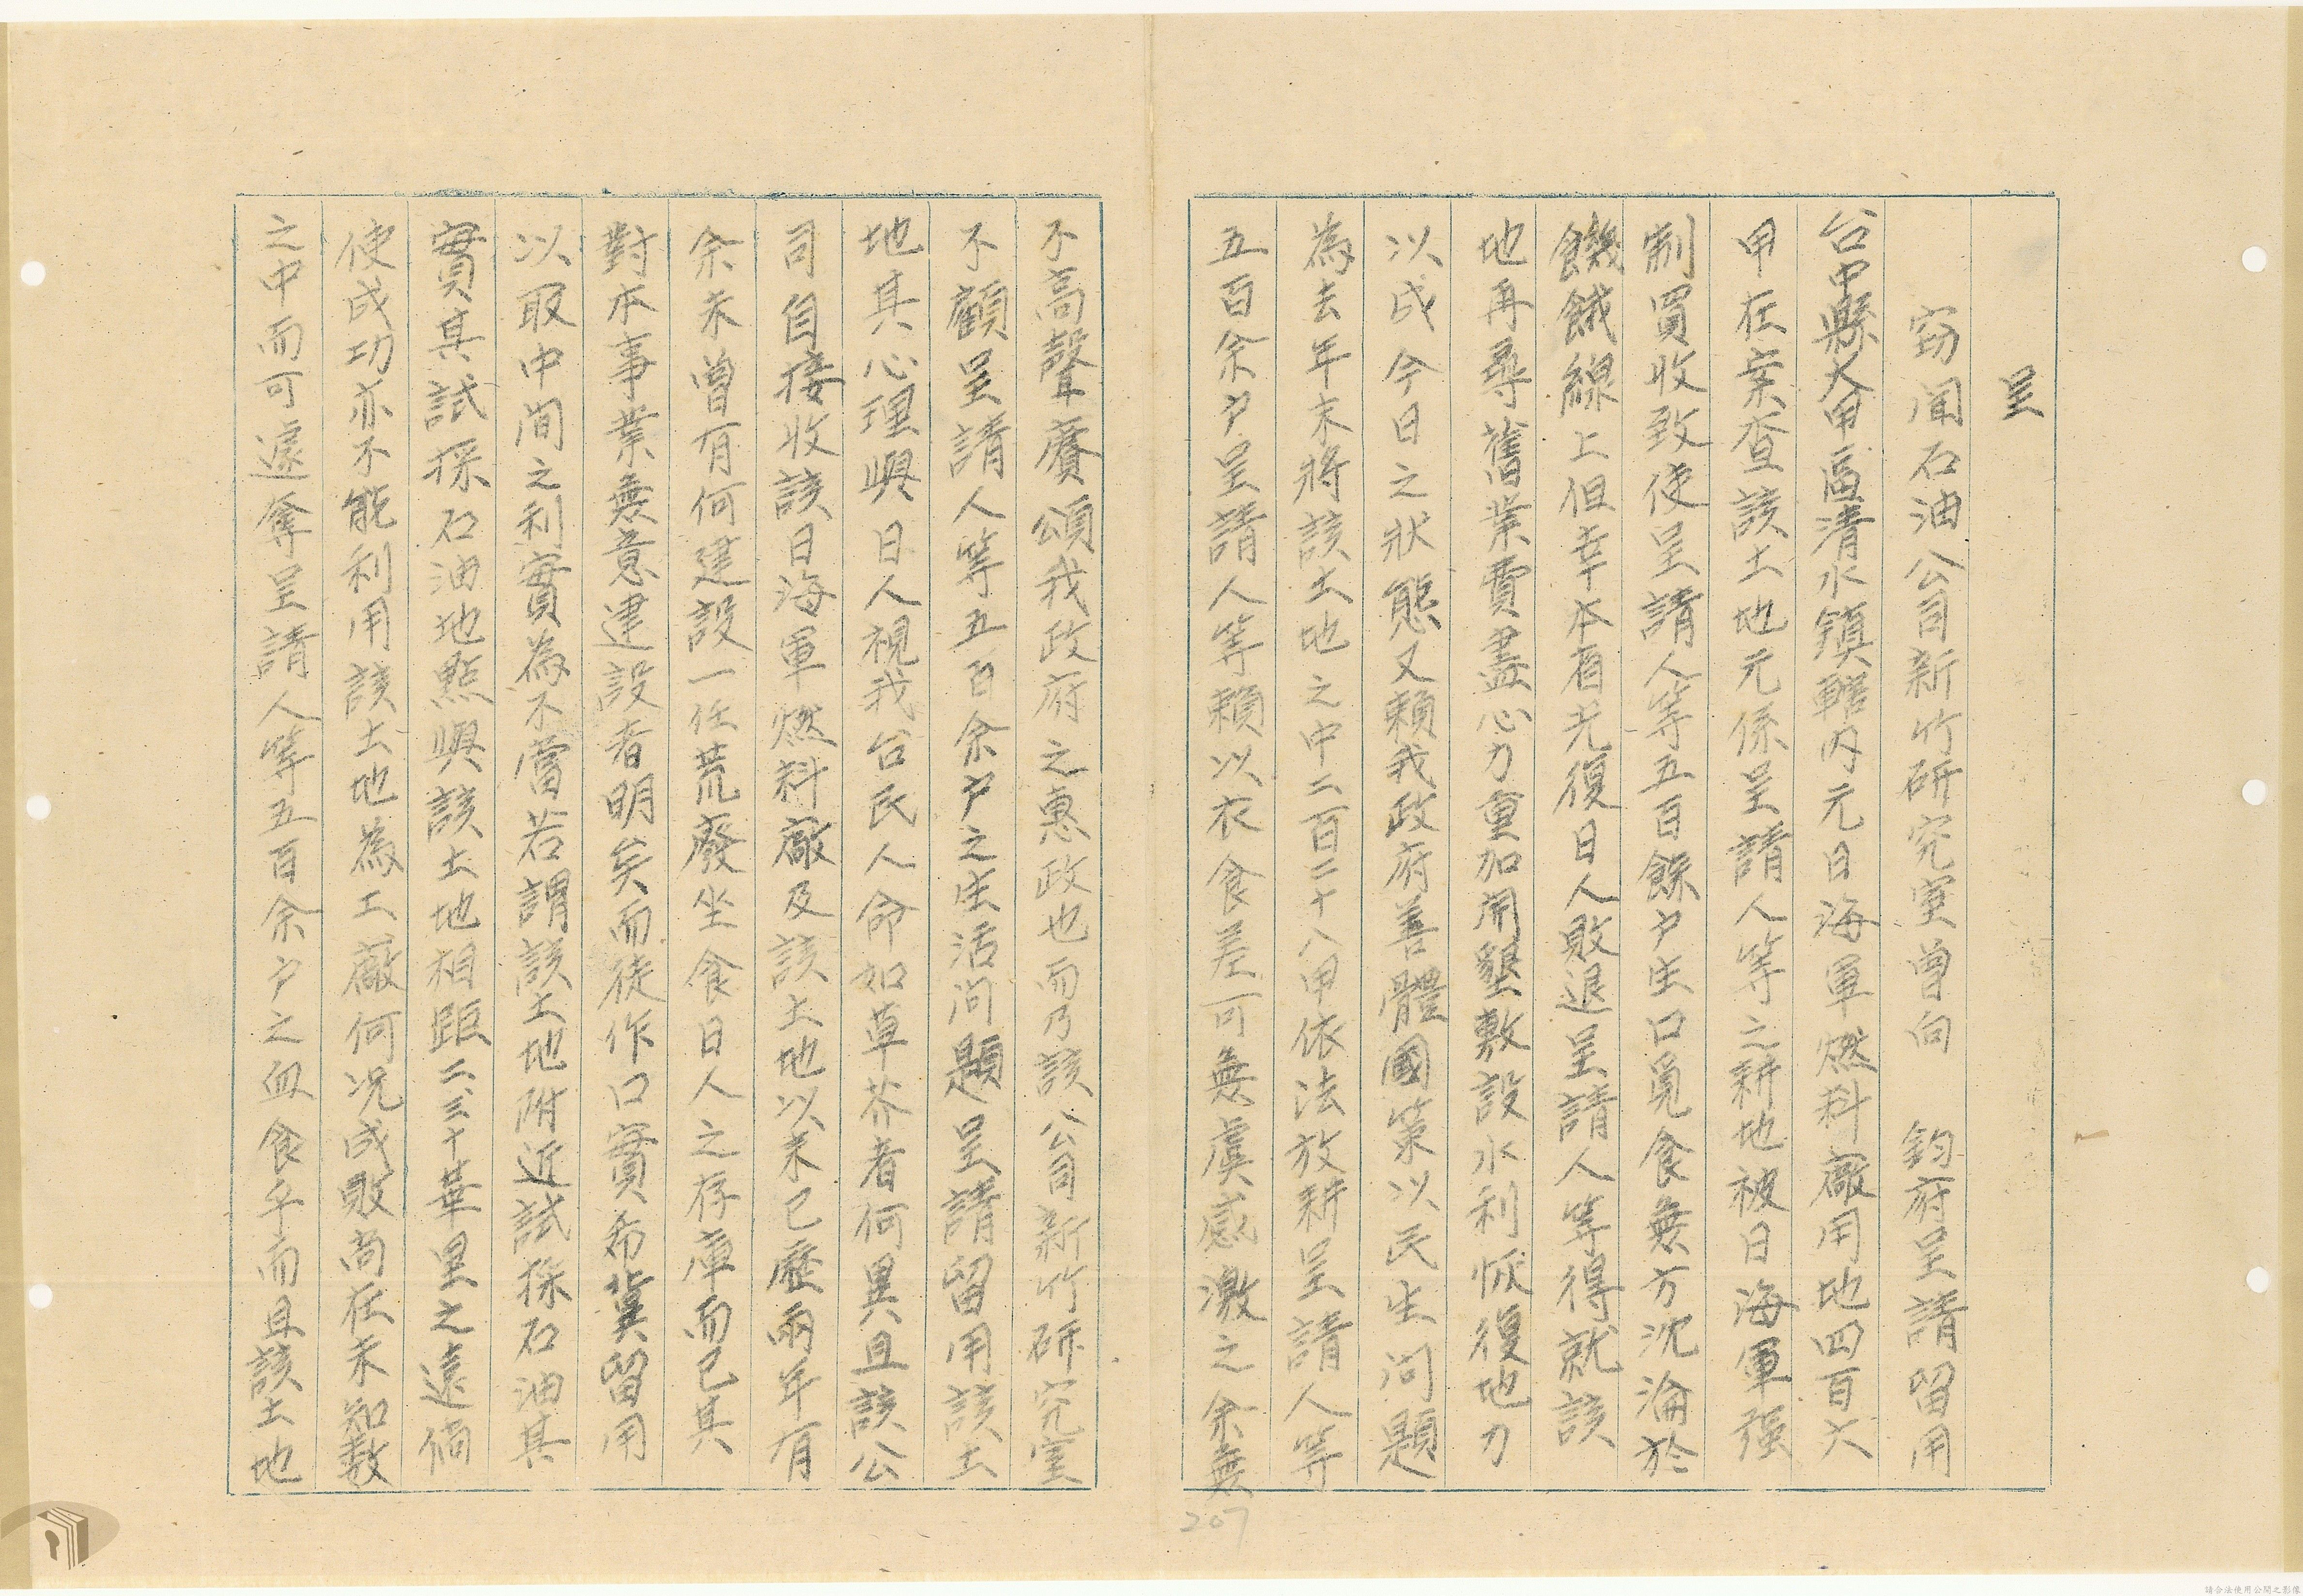 呈
竊聞石油公司新竹研究室曾向　鈞府呈請留用
台中縣大甲區清水鎮轄內元日海軍燃料廠用地四百大
甲在案查該土地元係呈請人等之耕地被日海軍強
制買收致使呈請人等五百餘戶生口覓食無方沈淪於
饑餓線上但幸本省光復日人敗退呈請人等得就該
地再尋舊業費盡心力重加開墾敷設水利恢復地力
以成今日之狀態又賴我政府善體國策以民生问題
為去年末將該土地之中二百二十八甲依法放耕呈請人等
五百余戶呈請人等賴以衣食差可無虞感激之余無
不高聲賡頌我政府之惠政也而乃該公司新竹研究室
不顧呈請人等五百余戶之生活问題呈請留用該土
地其心理與日人視我台民人命如草芥者何異且該公
司自接收該日海軍燃料廠及該土地以来已歷兩年有
余未曾有何建設一任荒廢坐食日人之存庫而已其
對本事業無意建設者明矣而徒作口實希冀留用
以取中间之利實為不當若謂該土地附近試採石油其
實其試採石油地點與該土地相距二、三十華里之遠倘
使成功亦不能利用該土地為工廠何况成敗尚在未知数
之中而可遽奪呈請人等五百余戶之血食乎而且該土地
207
請合法使用公開之影像